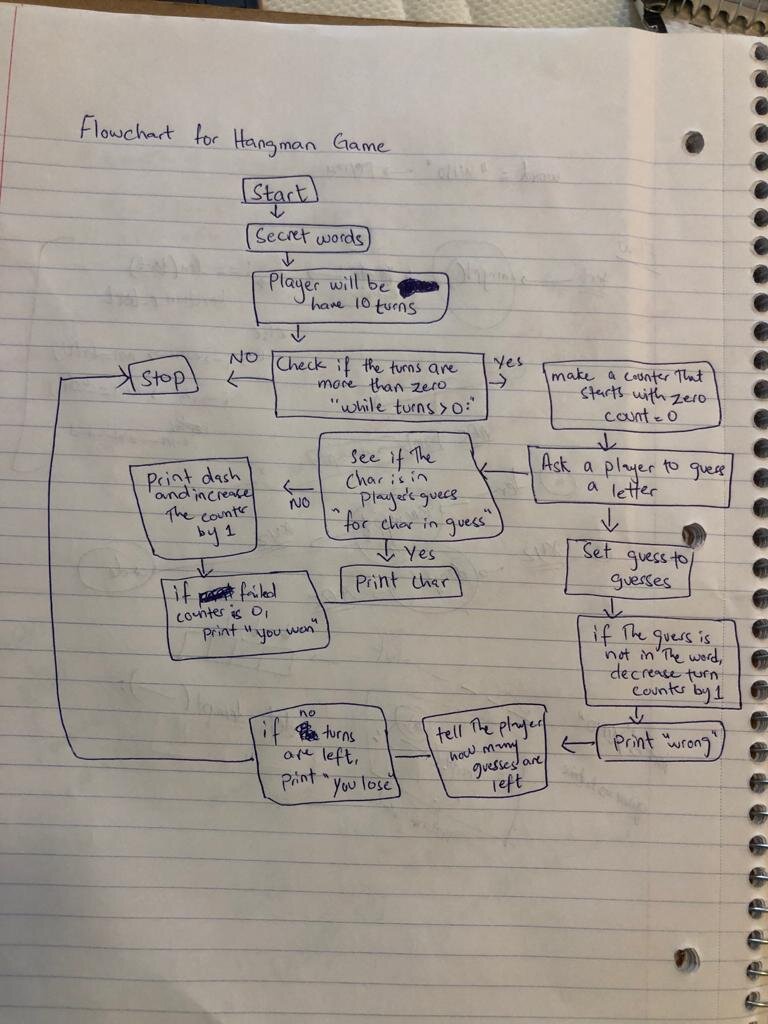 Flowchart for Hangman Game
Start
Secret words
Player will be
have 10 turns
Check if the turns are
more than zero
"while turns > 0:"
NO
Stop
Yes
make a counter That
starts with zero
count = 0
Ask a player to guess
a letter
See if The
Char is in
Player's guess
"for char in guess"
NO
Print dash
and increase
The counter
by 1
Yes
Print char
if failed
counter is 0,
print "you won"
Set guess to
guesses
if The guess is
not in The word,
decrease turn
counter by 1
Print "wrong"
tell The player
how many
guesses are
left
if no turns
are left,
print "You lose"